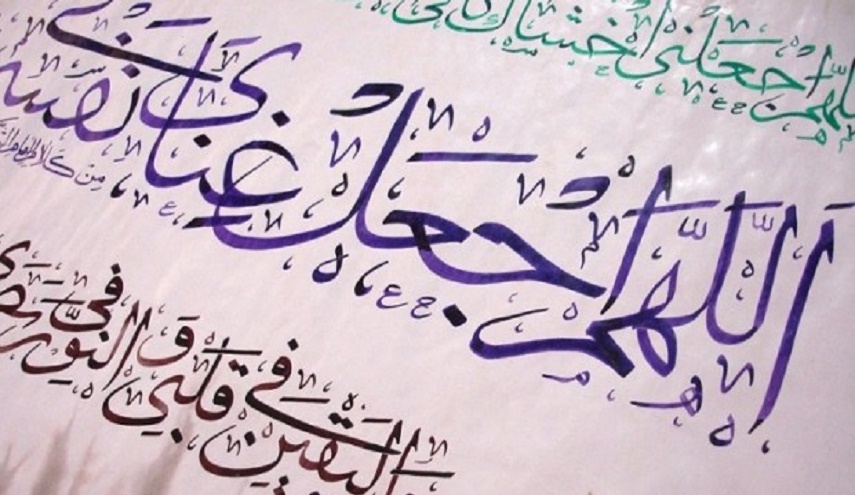 اللهم اجعلني اخشاك
اَللّهُمَّ اجْعَلْ غِنايَ في نَفْسي
مِن كلام الامام
اليَقينَ في قَلْبي وَ النُّورَ في